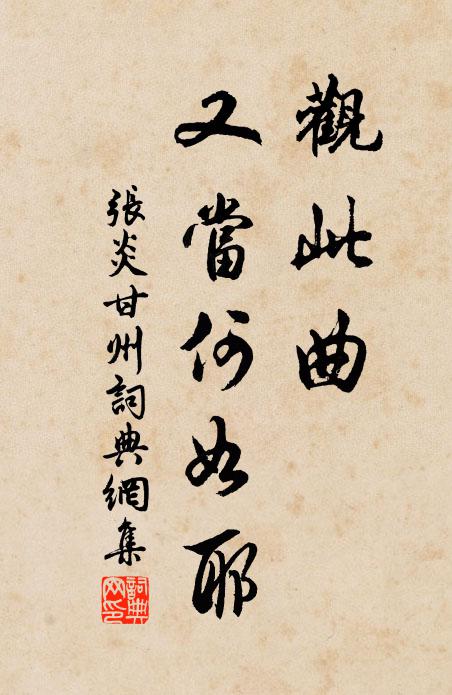 觀此曲
又當何如耶
張炎甘州詞典網集
詞典
网印